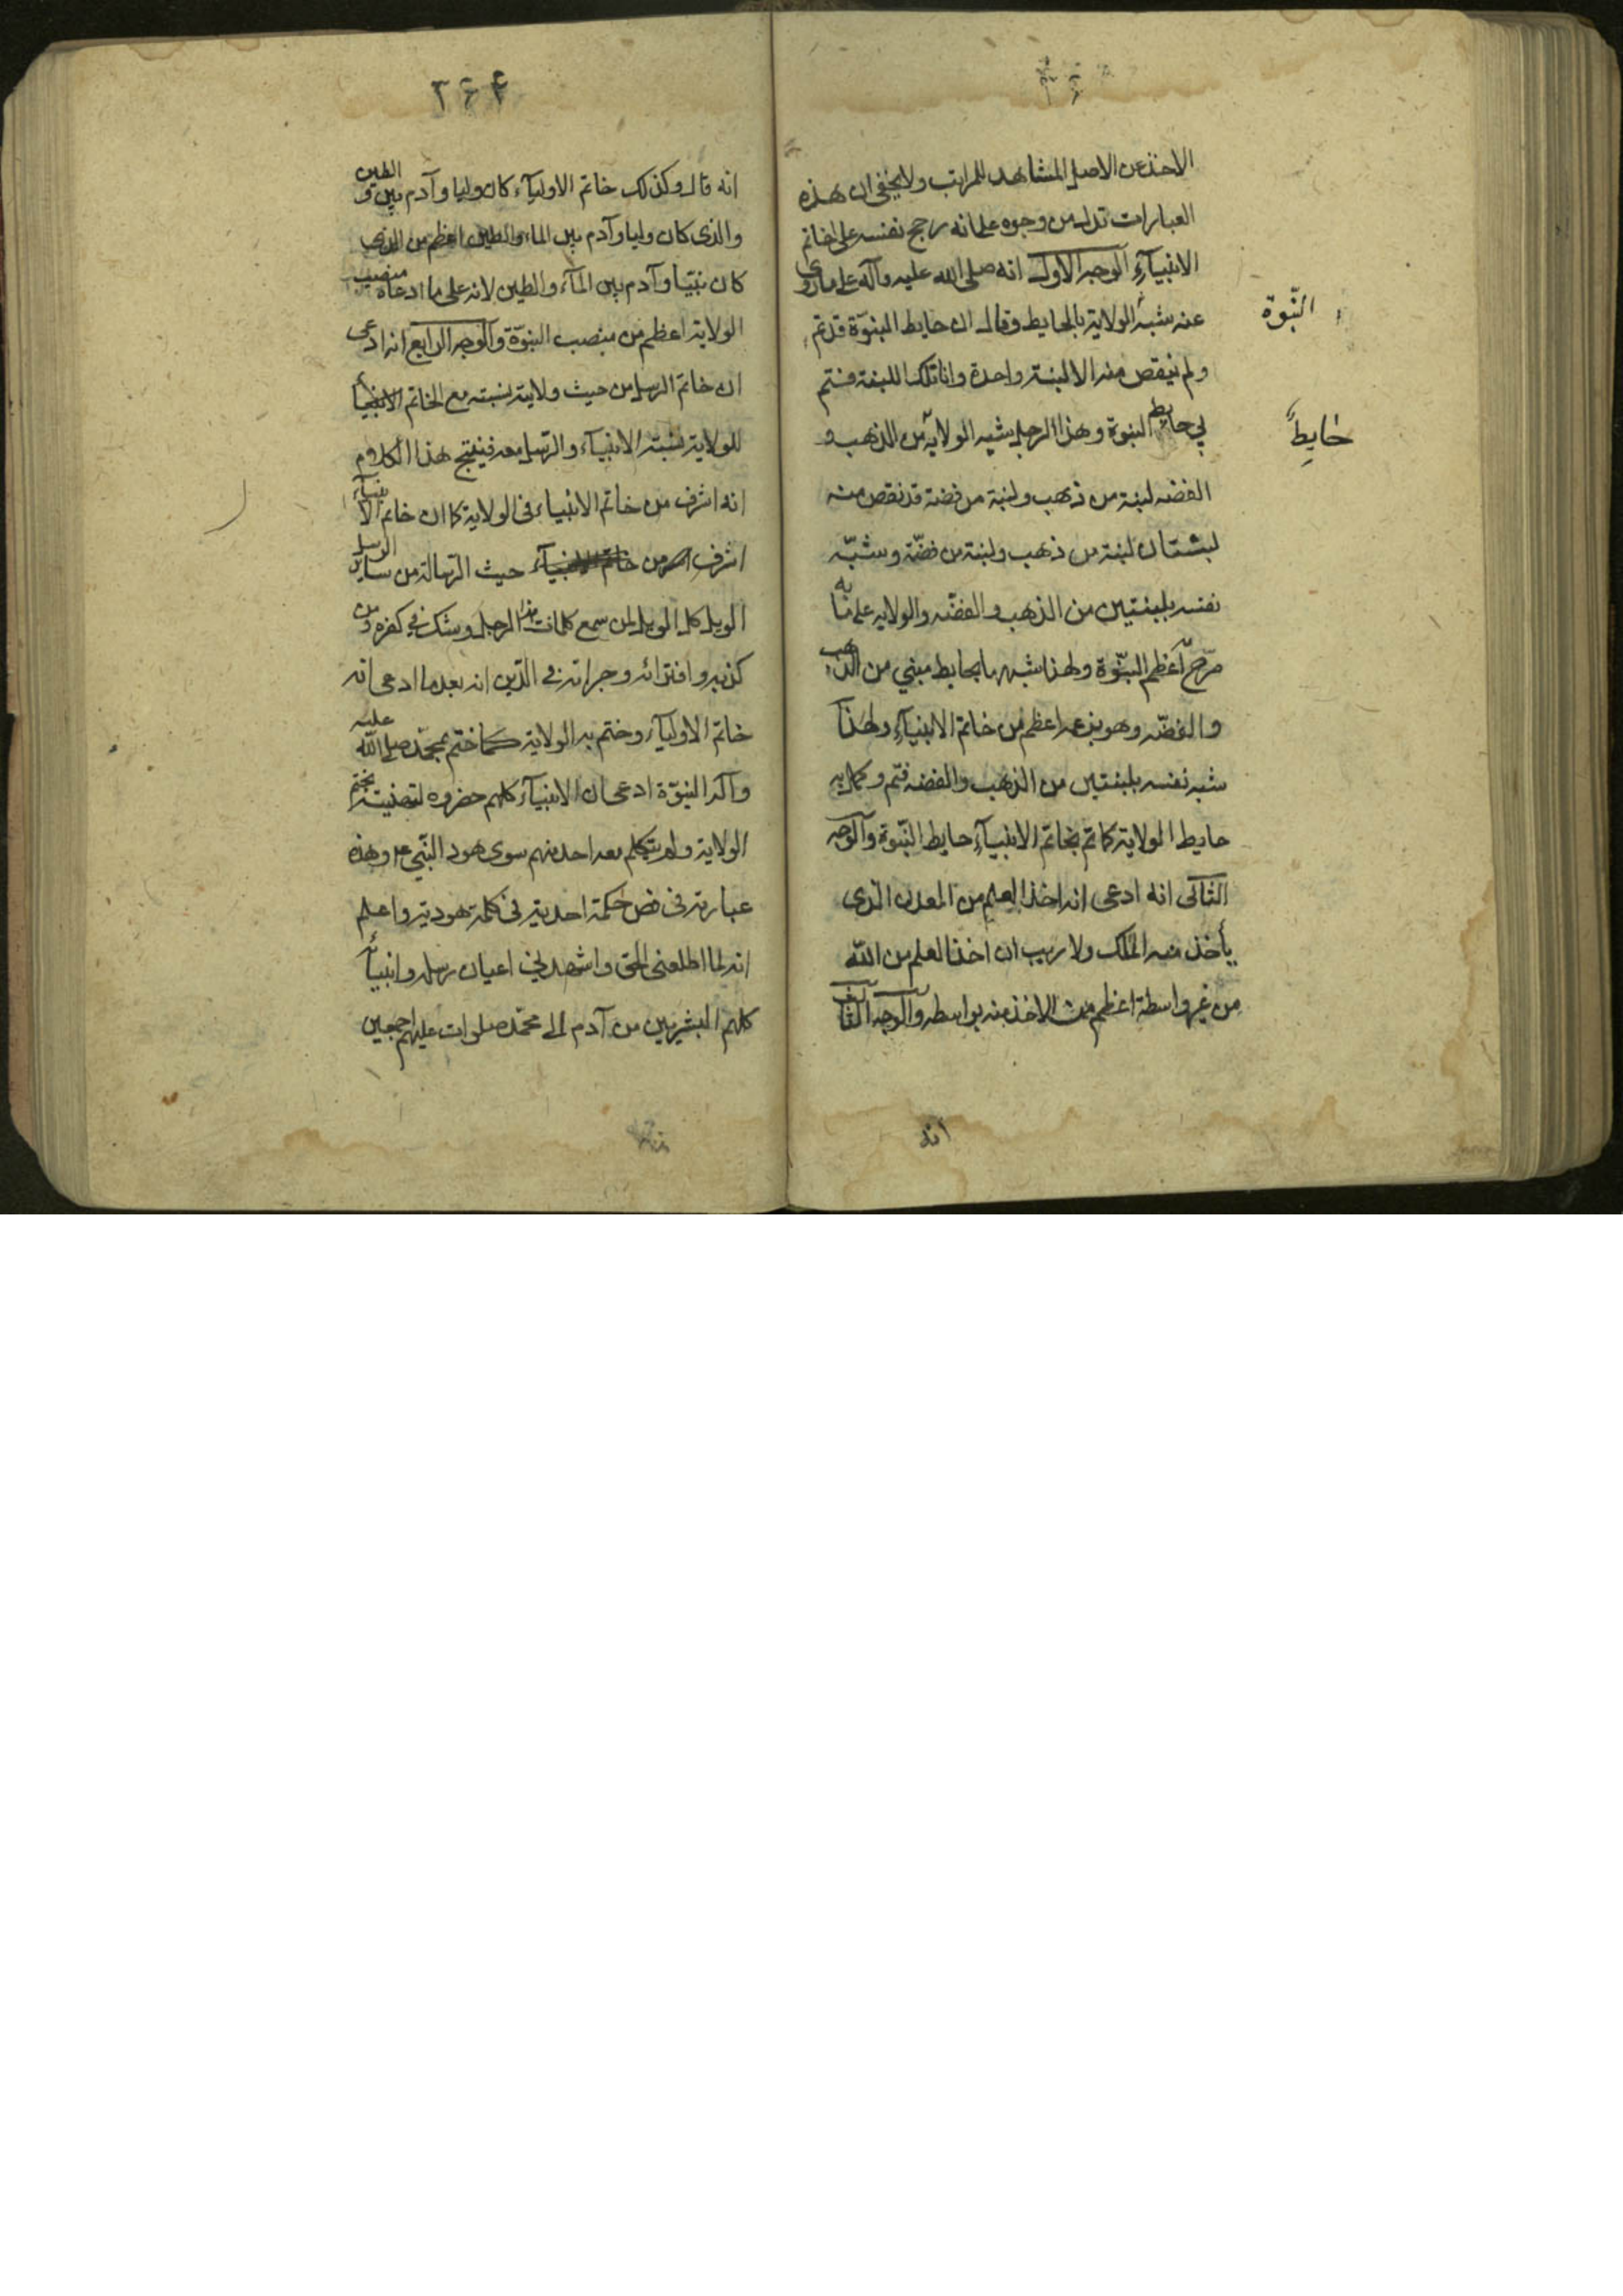 الاخذ عن الاصل المشاهد للمراتب ولا يخفى ان هذه
العبارات تدل من وجوه على انه رجح نفسه على خاتم
الانبيآء الوجه الاول انه صلى الله عليه وآله على ما روى
عنه شبه الولاية بالحايط وقال ان حايط النبوة قد تم
النّبوّة
ولم ينقص منه الا لبنة واحدة وانا تلك اللبنة فتم
بي حايط النبوة وهذا الرجل شبه الولاية من الذهب و
حايط
الفضه لبنة من ذهب ولبنة من فضة قد نقص منه
لبنتان لبنة من ذهب ولبنة من فضّة وشبّه
نفسه بلبنتين من الذهب والفضّه والولاية على ما
صرّح اعظم النبّوة ولهذا شبهها بحايط مبني من الذهب
والفضّه وهو بزعمه اعظم من خاتم الانبيآء ولهذا
شبه نفسه بلبنتين من الذهب والفضه فتم وكمل به
حايط الولاية كما تم بخاتم الانبيآء حايط النّبوة والوجه
الثانى انه ادعى انه اخذ العلم من المعدن الذى
يأخذ منه الملك ولا ريب ان اخذ العلم من الله
من غير واسطة اعظم من الاخذ منه بواسطه والوجه الثالث
انه
٣۶۴
انه قال وكذلك خاتم الاوليآء كان وليا وآدم بين الطين و
والذى كان وليا وآدم بين الماء والطين اعظم من الذى
كان نبيّا وآدم بين المآء والطين لانه على ما ادعاه منصب
الولاية اعظم من منصب النبوّة والوجه الرابع انه ادعى
ان خاتم الرسل من حيث ولايته نسبته مع الخاتم
للولاية نسبة الانبيآء والرّسل معه فينتج هذا الكلام
انه اشرف من خاتم الانبياء فى الولاية كما ان خاتم الانبيآء
اشرف من حيث الرّسالة من ساير الرسل
الويل كل الويل لمن سمع كلمات هذا الرجل وشك في كفره ومن
كذبه وافترائه وجراته في الدّين انه بعد ما ادعى انه
خاتم الاوليآء وختم به الولاية كما ختم بمحمّد صلى الله عليه
وآله النبوّة ادعى ان الانبيآء كلهم حضروه لتهنيته بختم
الولاية ولم يتكلم معه احد منهم سوى هود النّبي ع وهذه
عبارته فى فص حكمة احدية في كلمة هودية واعلم
انه لما اطلعنى الحق واشهدني اعيان رسله وانبيائه
كلهم البشريين من آدم الى محمّد صلوات عليهم اجمعين